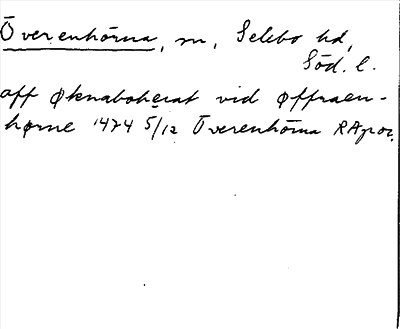 Överenhörna, sn, Selebo hd,
Söd. l.
aff Øknaboherat vid Øffraen-
hørne 1474 5/12 Överenhörna RApor.